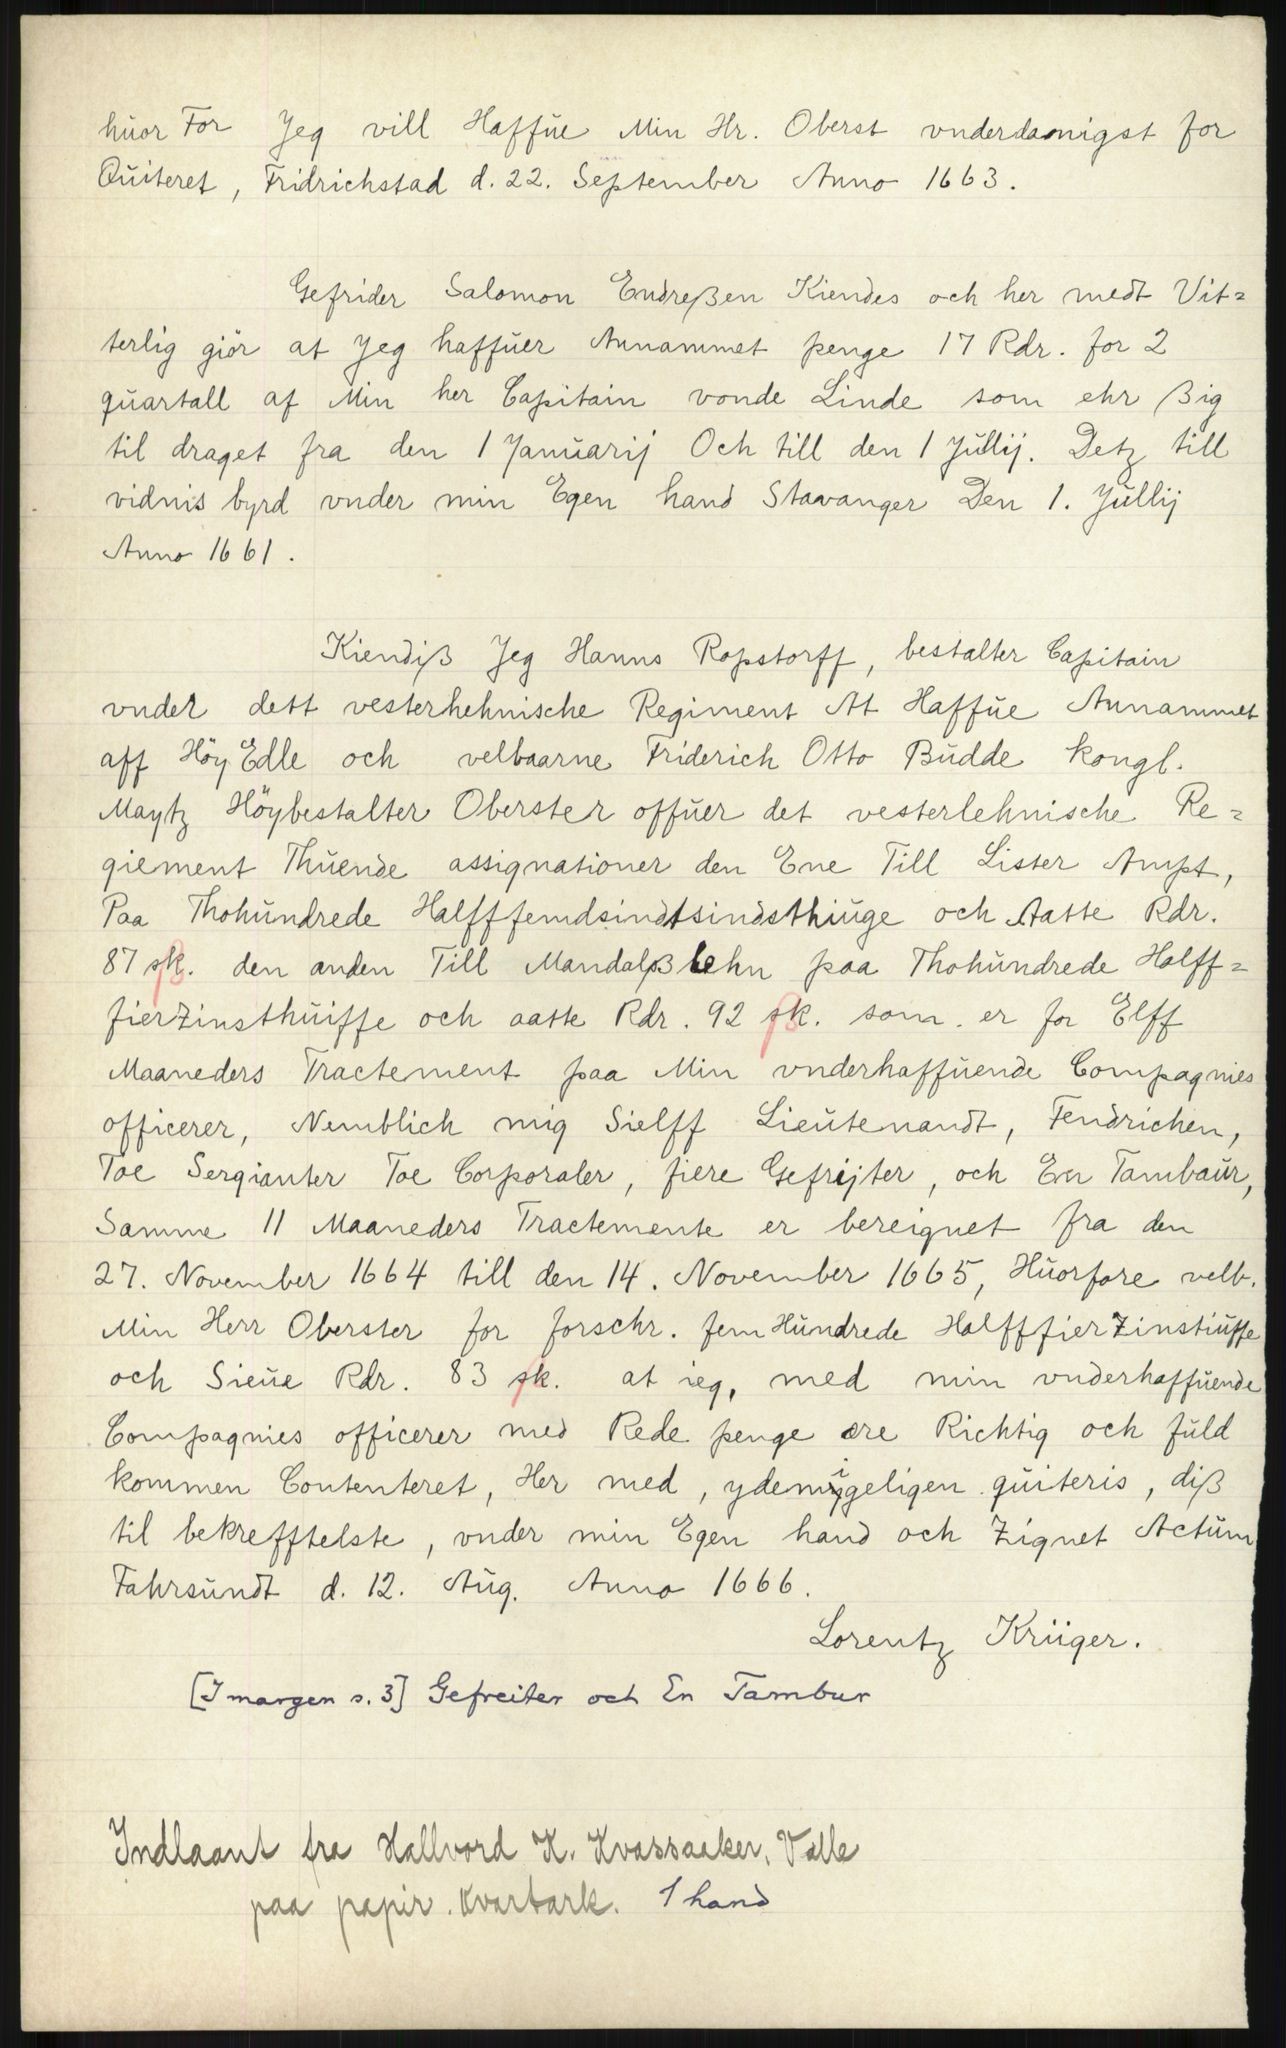 huor For Jeg vill Haffue Min Hr. Oberst vnderdaonigst for
Quiteret, Fridrichstad d. 22. September Anno 1663.
Gefrider Salomon Endreßen Kiendes och her medt Vit=
terlig giör at Jeg haffuer Annammet penge 17 Rdr. for 2
quartall af Min her Capitain vonde Linde som ehr ßig
til draget fra den 1 Januarij Och till den 1 Jullij. Detz till
vidnis byrd vnder min Egen hand Stavanger Den 1. Jullij
Anno 1661.
Kiendiß Jeg Hanns Ropstorff, bestalter Capitain
vnder dett vesterhehnische Regiment At Haffue Annammet
aff Höy Edle och velbaarne Friderich Otto Budde kongl.
Maytz Höybestalter Oberster offuer det vesterlehnische Re=
giement Thuende assignationer den Ene Till Lister Ampt,
Paa Thohundrede Halfffemdsindtsindsthiuge och Aatte Rdr.
87 sk. den anden Till Mandalßlehn paa Thohundrede Halff=
fierzinsthuiffe och aatte Rdr. 92 sk. som er for Elff
Maaneders Tractement paa Min vnderhaffuende Compagnies
officerer, Nemblich mig Sielff Lieutenandt, Fendrichen,
Toe Sergianter Toe Corporaler, fiere Gefrijter, och En Tambaur,
Samme 11 Maaneders Tractemente er bereignet fra den
27. November 1664 till den 14. November 1665, Huorfore velb.
Min Herr Oberster for forschr. fem Hundrede Halfffierzinstiuffe
och Sieue Rdr. 83 sk. at ieg, med min vnderhaffuende
Compagnies officerer med Rede penge ere Richtig och fuld
kommen Contenteret, Her med, ydemigeligen quiteris, diß
til bekrefftelste, vnder min Egen hand och Zignet Actum
Fahrsundt d. 12. Aug. Anno 1666.
Lorentz Krüger.
[I margen s. 3] Gefreiter och En Tambur
Indlaant fra Hallvord K. Kvassaaker, Valle
paa papir. Kvartark. 1 hand